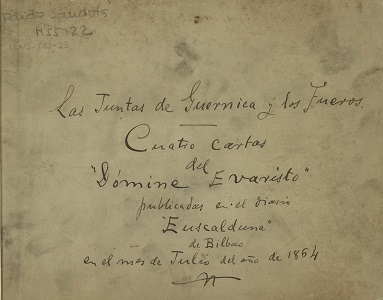 MSS 122
Las Juntas de Guernica y los Fueros.
Cuatro cartas
del
"Dómine Evaristo"
publicadas en el diario
"Euscalduna"
de Bilbao
en el mes de Julio del año de 1864